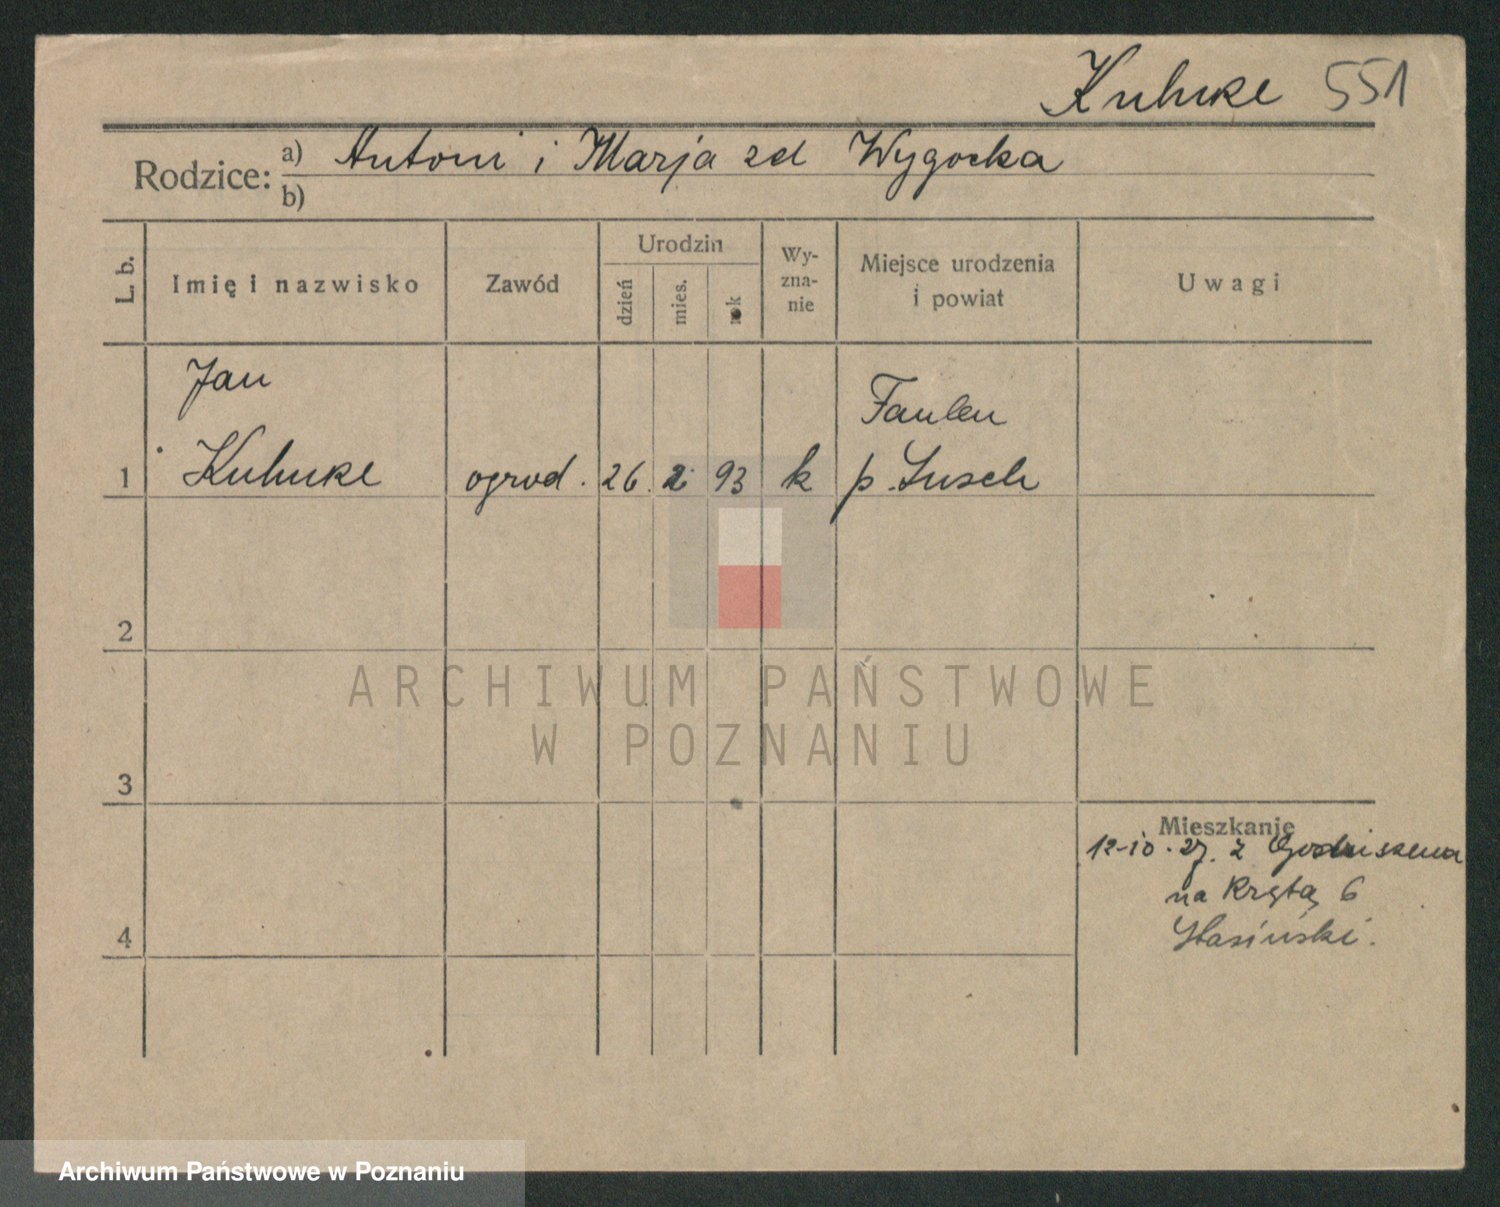 Kuhnke 551
Rodzice: a) Antoni i Marja zd Wygocka
b)
L. b. Imię i nazwisko Zawód Urodzin dzień mies. rok Wy-zna-nie Miejsce urodzenia i powiat Uwagi
Jan Faulen
1 Kuhnke ogrod. 26. 2. 93 k p. Lusch
2
ARCHIWUM PAŃSTWOWE
W POZNANIU
3
Mieszkanie
12-10-27. z
na Krętą 6
4 Stasiński.
Archiwum Państwowe w Poznaniu